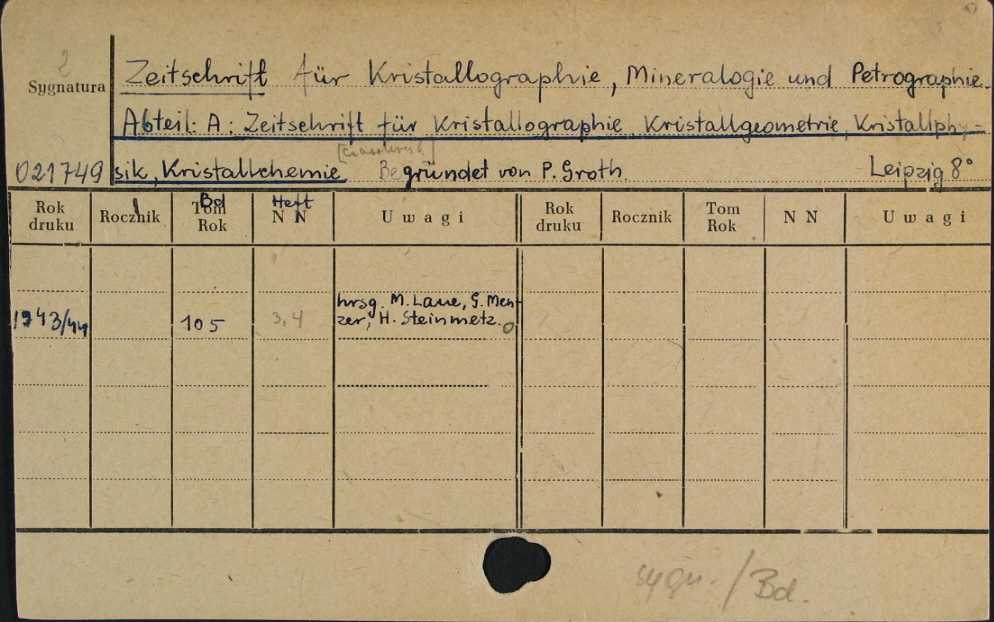 2
Sygnatura
Zeitschrift für Kristallographie, Mineralogie und Petrographie.
Abteil: A: Zeitschrift für Kristallographie Kristallgeometrie, Kristallphy-
021749 sik, Kristallchemie Begründet von P. Groth. Leipzig 8°
Rok druku Rocznik Tom Bd Rok Heft N N Uwagi Rok druku Rocznik Tom Rok N N Uwagi
1943/44 105 3,4 hrsg. M. Laue, G. Ment-
zer, H. Steinmetz. o
sygn. / Bd.